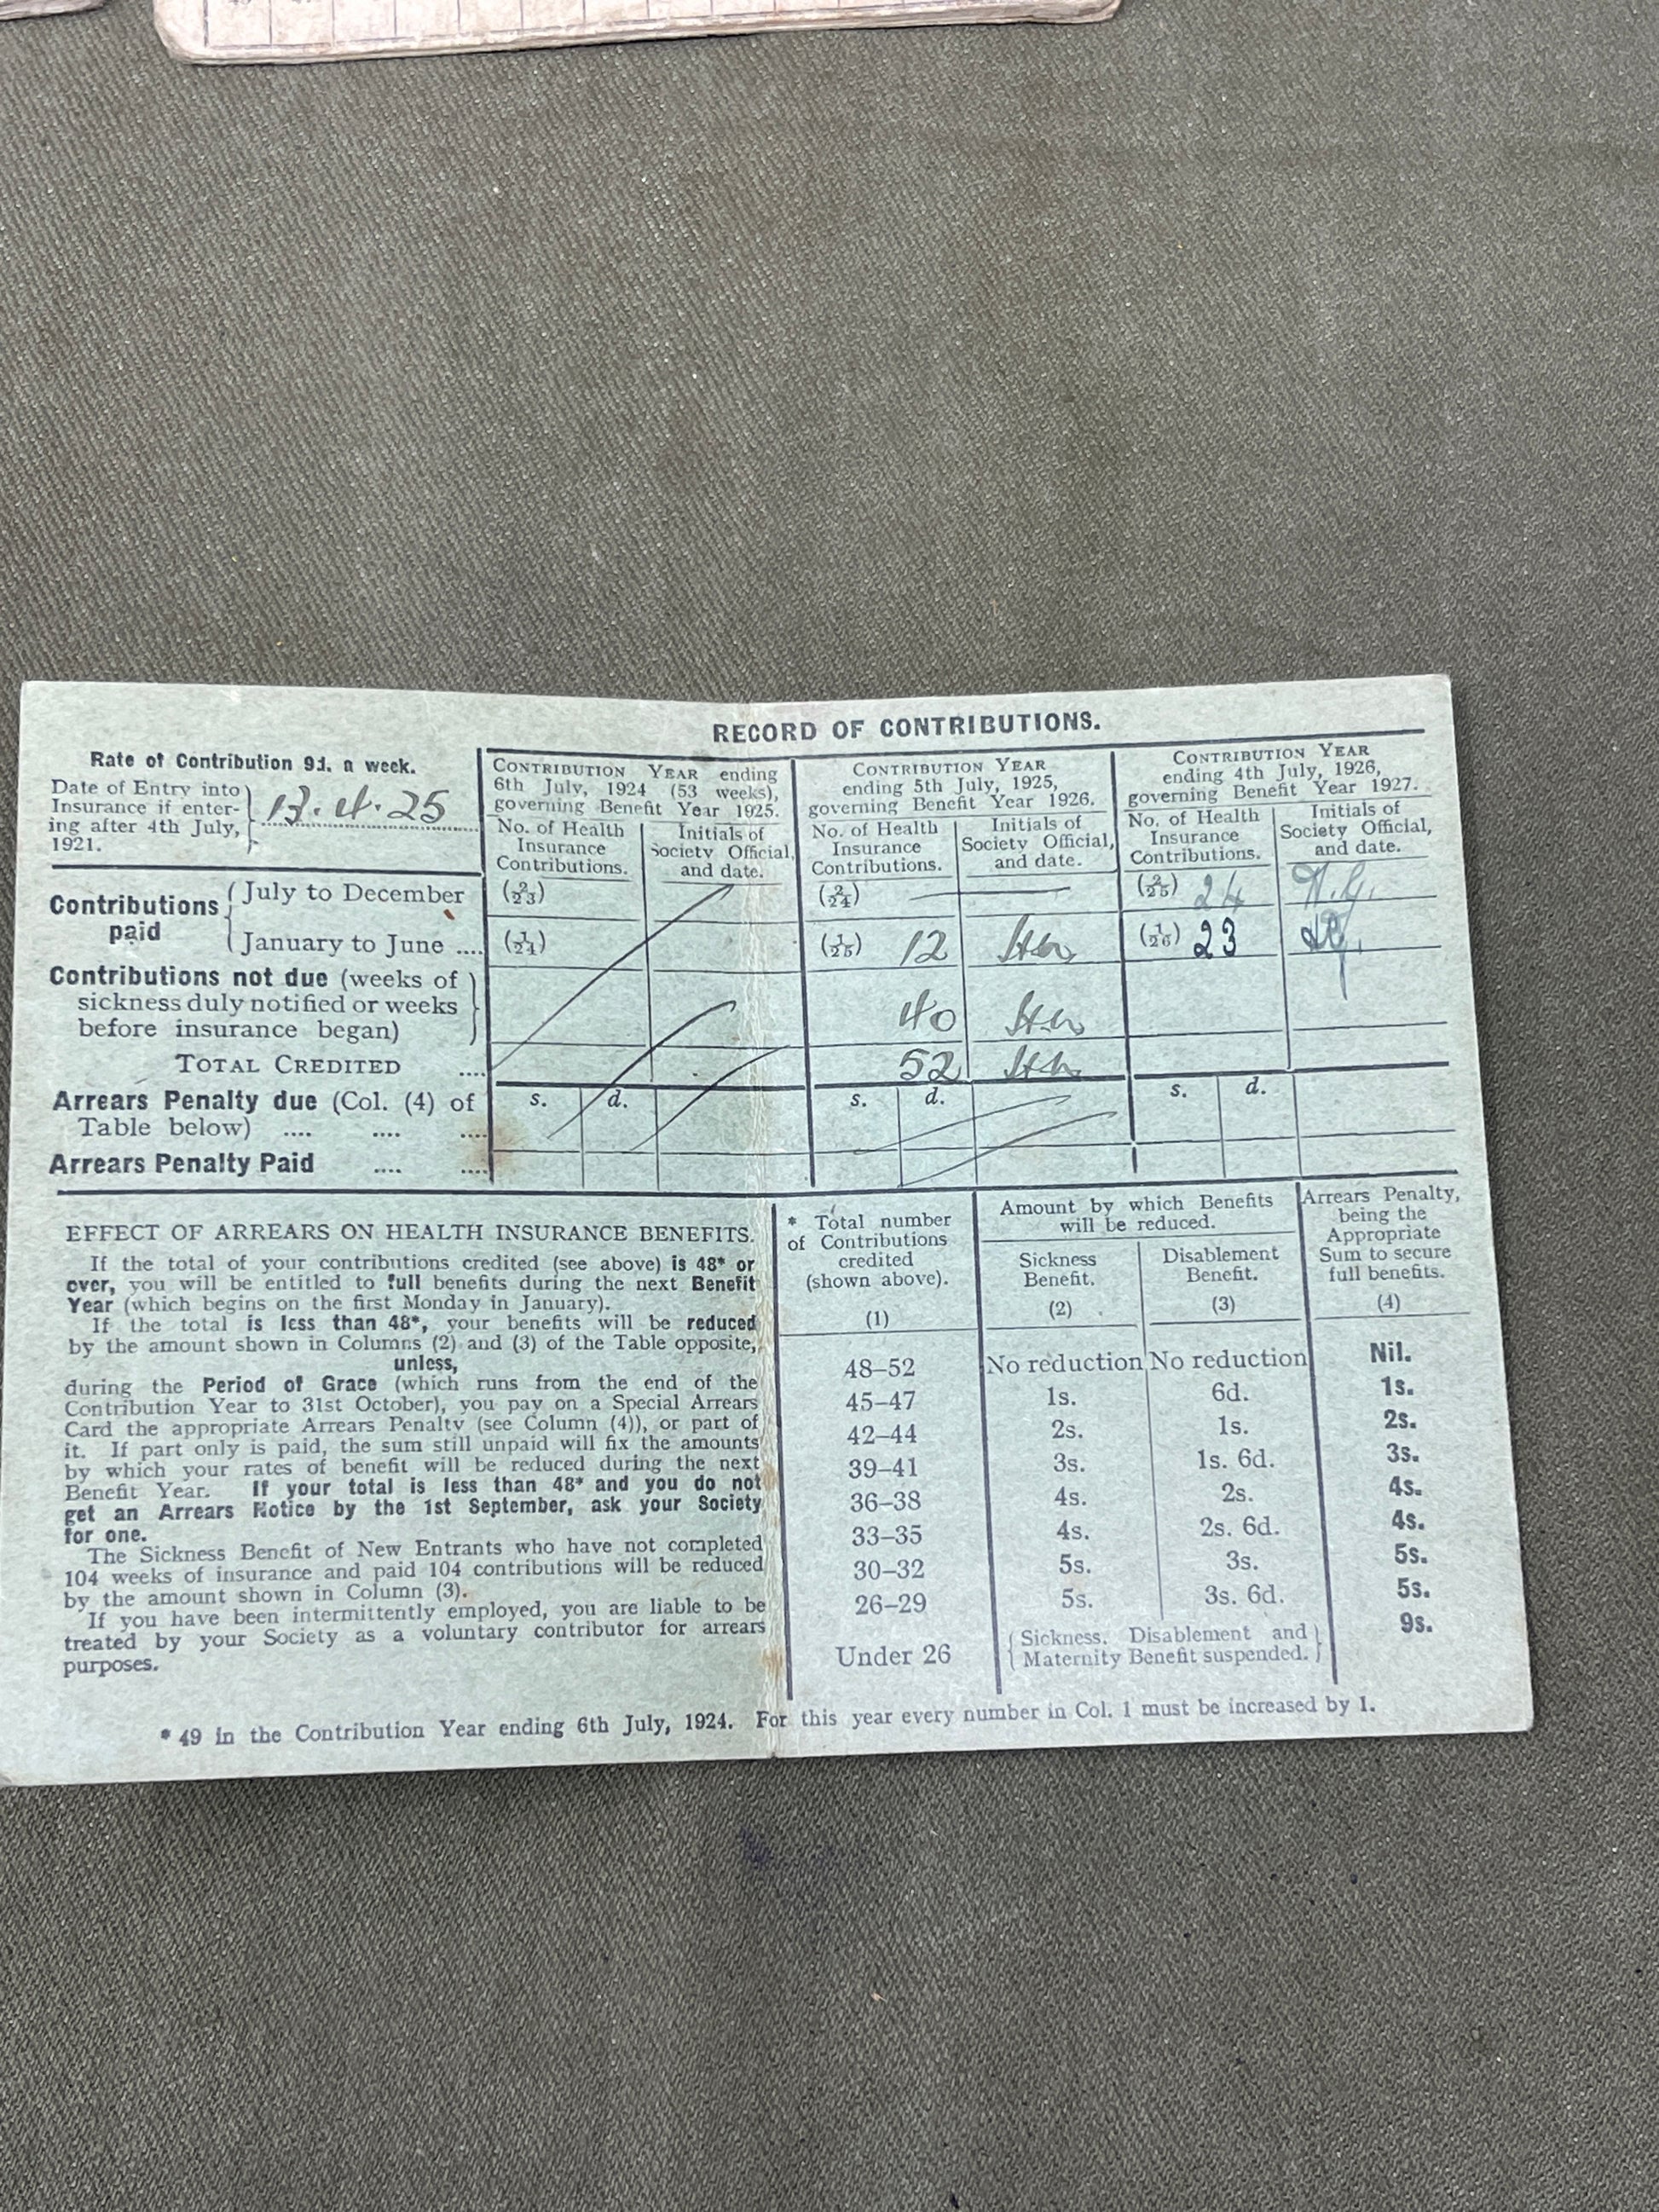 RECORD OF CONTRIBUTIONS.
Rate of Contribution 9d. a week.
Date of Entry into
Insurance if enter-
ing after 4th July,
1921.
13.4.25
CONTRIBUTION YEAR ending
6th July, 1924 (53 weeks),
governing Benefit Year 1925.
No. of Health
Insurance
Contributions.
Initials of
Society Official,
and date.
CONTRIBUTION YEAR
ending 5th July, 1925,
governing Benefit Year 1926.
No. of Health
Insurance
Contributions.
Initials of
Society Official,
and date.
CONTRIBUTION YEAR
ending 4th July, 1926,
governing Benefit Year 1927.
No. of Health
Insurance
Contributions.
Initials of
Society Official,
and date.
Contributions paid
July to December
(2/23) (2/24) (2/25) 24
January to June ....
(1/24) (1/25) 12 (1/26) 23
Contributions not due (weeks of
sickness duly notified or weeks
before insurance began)
40
TOTAL CREDITED .... 52
Arrears Penalty due (Col. (4) of
Table below) .... .... ....
s. d. s. d. s. d.
Arrears Penalty Paid .... ....
EFFECT OF ARREARS ON HEALTH INSURANCE BENEFITS.
If the total of your contributions credited (see above) is 48* or
over, you will be entitled to full benefits during the next Benefit
Year (which begins on the first Monday in January).
If the total is less than 48*, your benefits will be reduced
by the amount shown in Columns (2) and (3) of the Table opposite,
unless,
during the Period of Grace (which runs from the end of the
Contribution Year to 31st October), you pay on a Special Arrears
Card the appropriate Arrears Penalty (see Column (4)), or part of
it. If part only is paid, the sum still unpaid will fix the amounts
by which your rates of benefit will be reduced during the next
Benefit Year. If your total is less than 48* and you do not
get an Arrears Notice by the 1st September, ask your Society
for one.
The Sickness Benefit of New Entrants who have not completed
104 weeks of insurance and paid 104 contributions will be reduced
by the amount shown in Column (3).
If you have been intermittently employed, you are liable to be
treated by your Society as a voluntary contributor for arrears
purposes.
* Total number
of Contributions
credited
(shown above).
(1)
Amount by which Benefits
will be reduced.
Sickness
Benefit.
(2)
Disablement
Benefit.
(3)
Arrears Penalty,
being the
Appropriate
Sum to secure
full benefits.
(4)
48–52 No reduction No reduction Nil.
45–47 1s. 6d. 1s.
42–44 2s. 1s. 2s.
39–41 3s. 1s. 6d. 3s.
36–38 4s. 2s. 4s.
33–35 4s. 2s. 6d. 4s.
30–32 5s. 3s. 5s.
26–29 5s. 3s. 6d. 5s.
Under 26 Sickness, Disablement and 9s.
Maternity Benefit suspended.
* 49 in the Contribution Year ending 6th July, 1924. For this year every number in Col. 1 must be increased by 1.